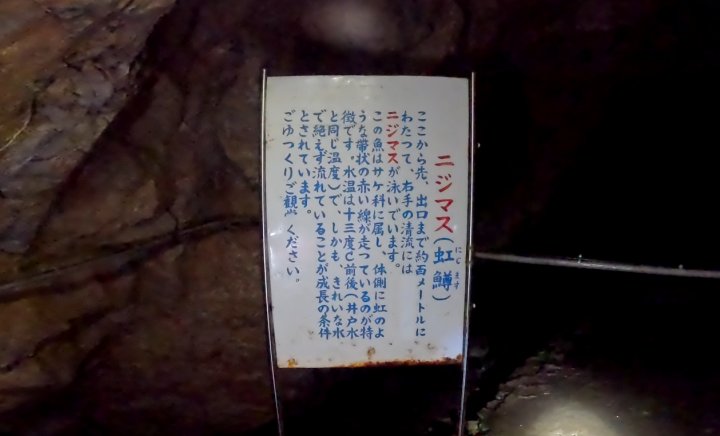 ニジマス(虹鱒)
にじ ます
ここから先、出口まで約百メートルに
わたつて、右手の清流には
ニジマスが泳いでいます。
この魚はサケ科に属し、体側に虹のよ
うな帯状の赤い線が走つているのが特
徴です。水温は十三度C前後(井戸水
と同じ温度)で、しかも、きれいな水
で絶えず流れていることが成長の条件
とされています。
ごゆつくりご観ください。